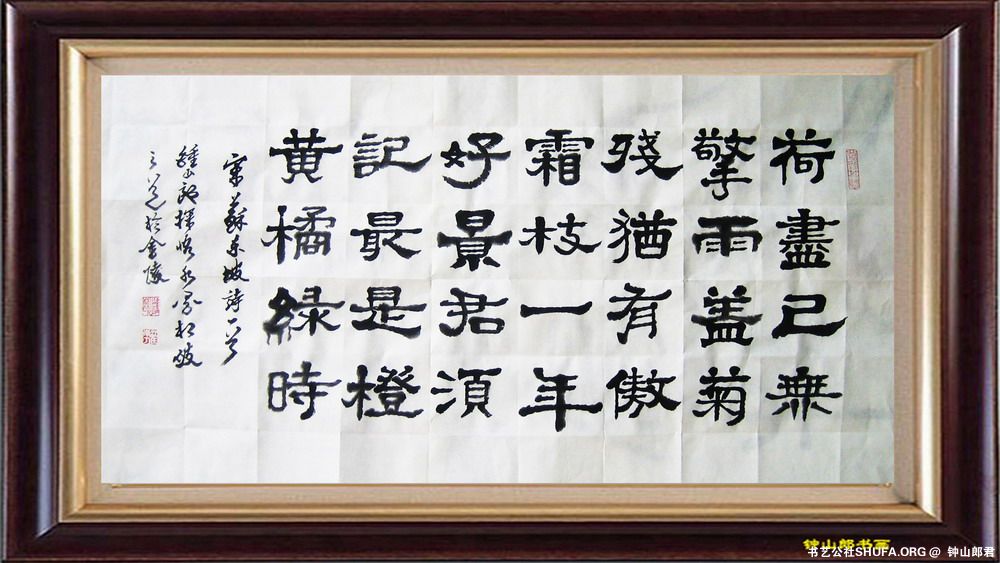 荷盡已無
擎雨盖菊
殘猶有傲
霜枝一年
好景君須
記最是橙
黄橘緑時
宋蘇东坡詩一首
鍾山郎
於金
钟山郎书画
书艺公社SHUFA.ORG @ 钟山郎君